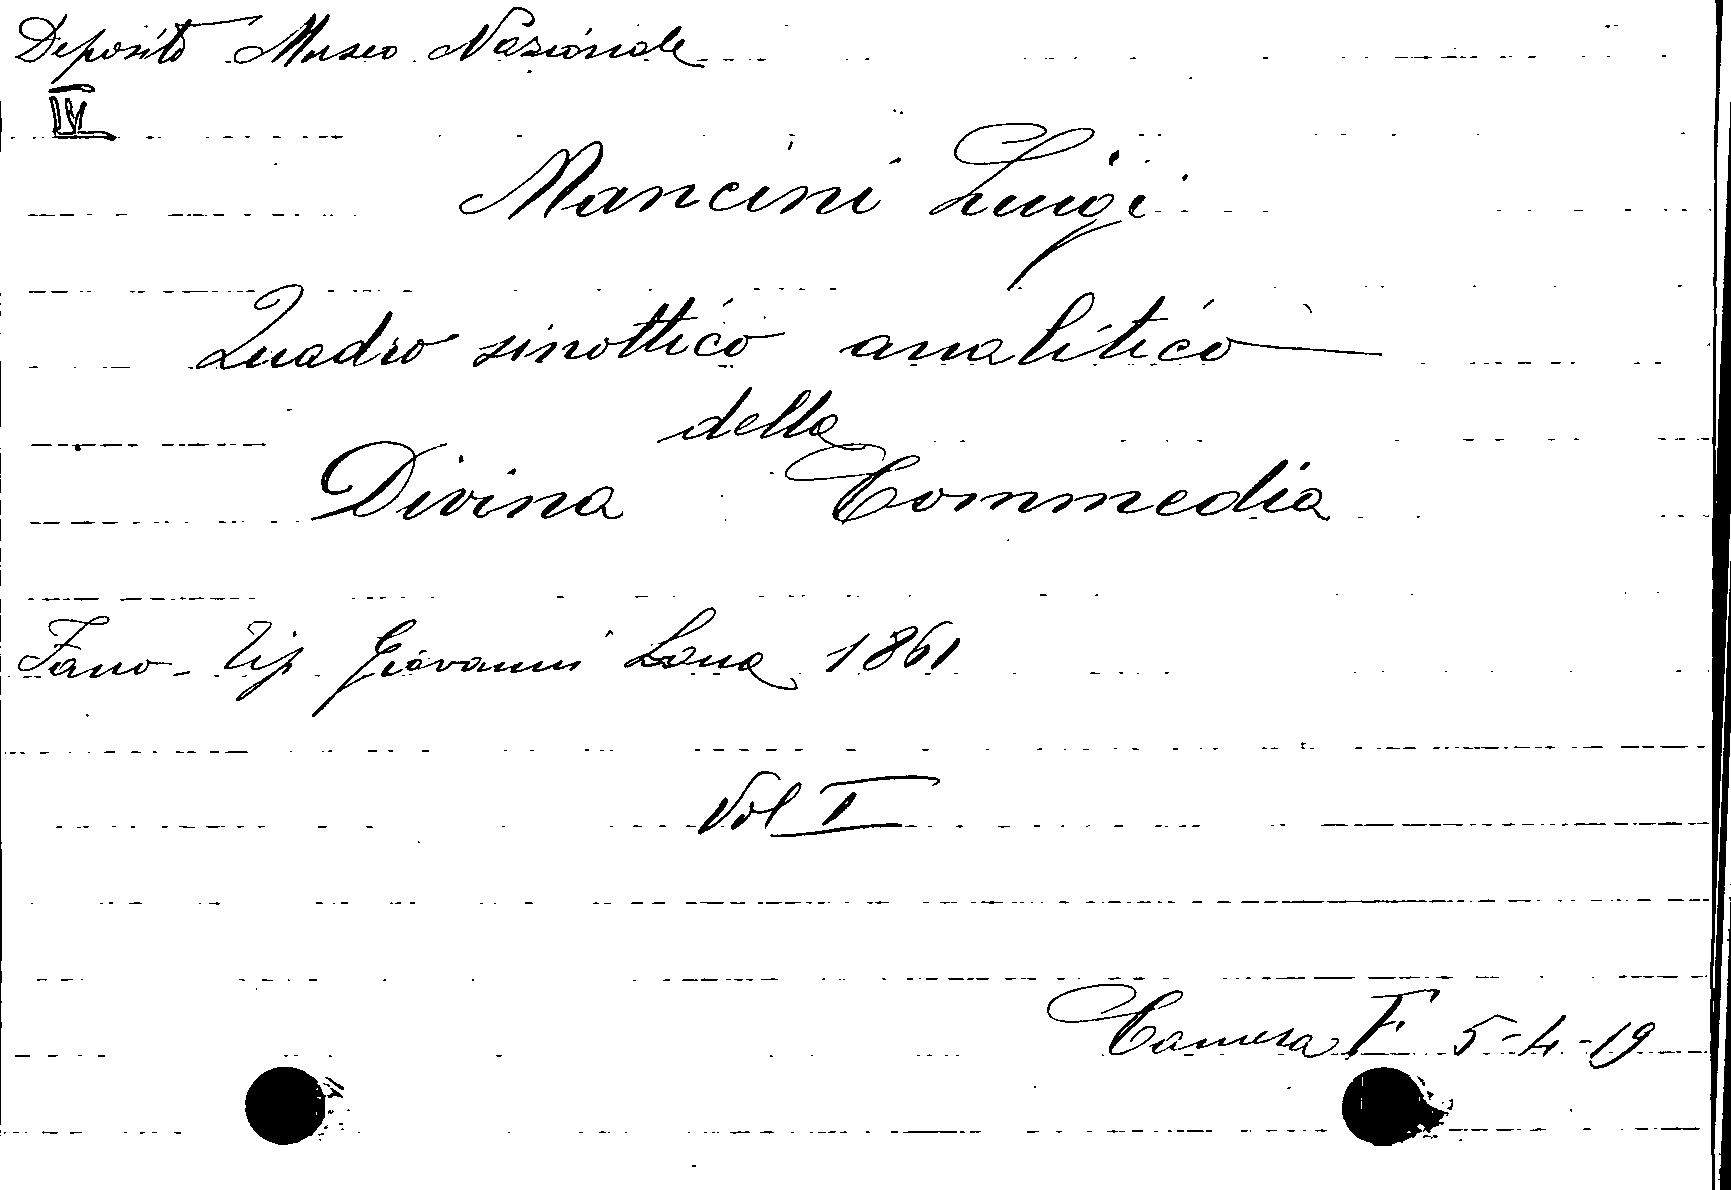 Deposito Museo Nazionale
IV
Mancini Luigi
Quadro sinottico analitico
della
Divina Commedia
Fano - Tip Giovanni Lana 1861
Vol I
Camera F. 5-4-19